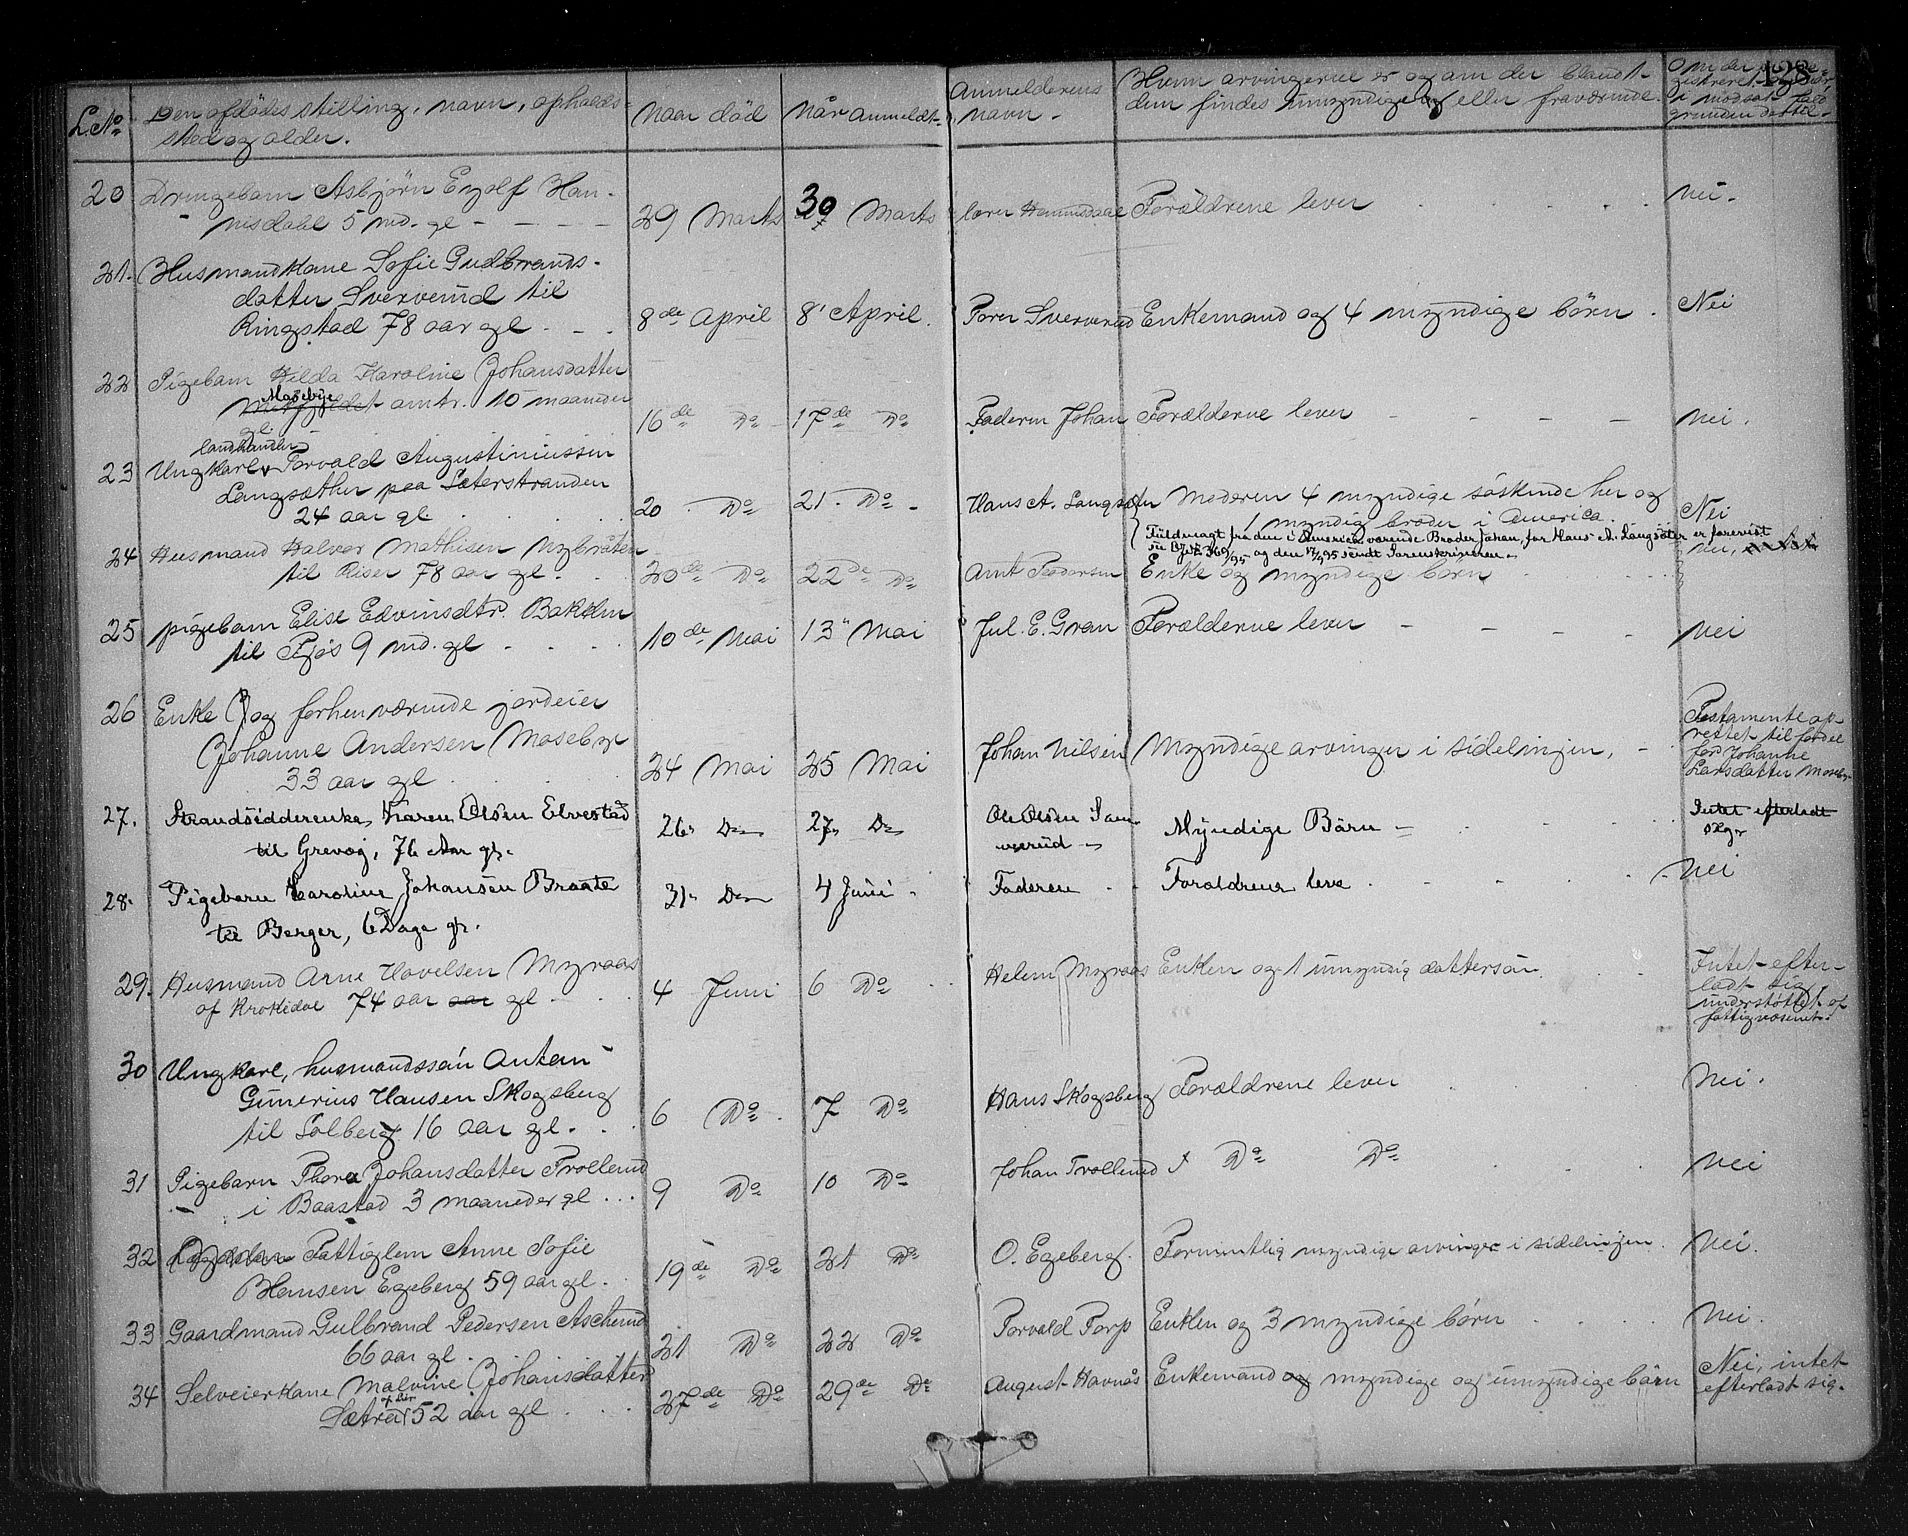 128
L. No
Den afdödes stilling, navn, opholds-
sted og alder.
Naar död
Når anmeldt
Anmelderens
navn.
Hvem arvingerne er og om der blandt
dem findes umyndige eller fraværende.
Om der
i modsat fald
grunden dertil.
20 Drengebarn Asbjörn Eyolf Han-
nisdahl 5 md. gl
29 Marts
30 Marts
Hannisdahl
Forældrene lever
nei.
21. Husmandkone Sofie Gudbrands-
datter Sververud til
Ringstad 78 aar gl
8de April
8' April.
Torn Sververud
Enkemand og 4 myndige börn.
Nei
22 Pigebarn Hilda Karoline Johansdatter
Mosebye
amtr. 10 maaneder
gl.
16de Do
17de Do
Faderen Johan
Forælderne lever
nei.
landhandler
23 Ungkarl Torvald Augustiniussen
Langsæther paa Sæterstranden
24 aar gl.
20 Do
21. Do
Hans A. Langsæter
Moderen 4 myndige söskende her og
1 myndig broder i America.
Fuldmagt fra den i America værende Broder Johan, for Hans A. Langsæter er forevist
og den 17/9 95 sendt Sorenskriveren
Nei
24 Husmand Halvor Mathisen Nybråten
til Riser 78 aar gl.
20de Do
22de Do
Amt Pedersen
Enke og myndige börn
nei,
25 pigebarn Elise Edvinsdtr. Bakken
til Fjös 9 md. gl
10de Mai
13" Mai
Jul. E. Gran
Forælderne lever
nei
26 Enke og forhenværende jordeier
Johanne Andersen Mosebye
33 aar gl
24 Mai
25 Mai
Johan Nilsen
Myndige arvinger i sidelinjen.
Testamente op-
rettet til fordel
for Johanne
Larsdatter Moseby
27. Strandsidderenke Karen Olsen Elvestad
til Grevog, 76 Aar gl.
26. Do
27. Do
Ole Olsen Sam-
uerud
Myndige Börn
Intet efterladt
sig
28. Pigebarn Karoline Johansen Braate
til Berger, 6 Dage gl.
31. Do
4 Juni
Faderen
Forældrene leve
nei
29. Husmand Arne Hovelsen Myraas
af Krokedal 74 aar aar gl
4 Juni
6 Do
Helene Myraas
Enken og 1 umyndig dattersön.
Intet efter-
ladt sig
understöttet af
fattigvæsenet.
30 Ungkarl, husmandssön Antern
Gunerius Hansen Skogsberg
til Solberg 16 aar gl.
6 Do
7 Do
Hans Skogsberg
Forældrene lever
nei.
31 Pigebarn Thora Johansdatter Trollerud
i Baastad 3 maaneder gl
9 Do
10 Do
Johan Trollerud
Do Do
nei
32 Fattiglem Anne Sofie
Hansen Egeberg 59 aar gl.
19de Do
21 Do
O. Egeberg.
Formentlig myndige arvinger i sidelinjen.
Nei.
33 Gaardmand Gulbrand Pedersen Ascherud
66 aar gl.
21 Do
22 Do
Torvald Torp
Enken og 3 myndige börn
nei.
34 Selveierkone Malvine Johansdatter
Sætra 52 aar gl
27de Do
29de Do
August Havnås
Enkemand og myndige og umyndige börn
Nei, intet
efterladt sig.